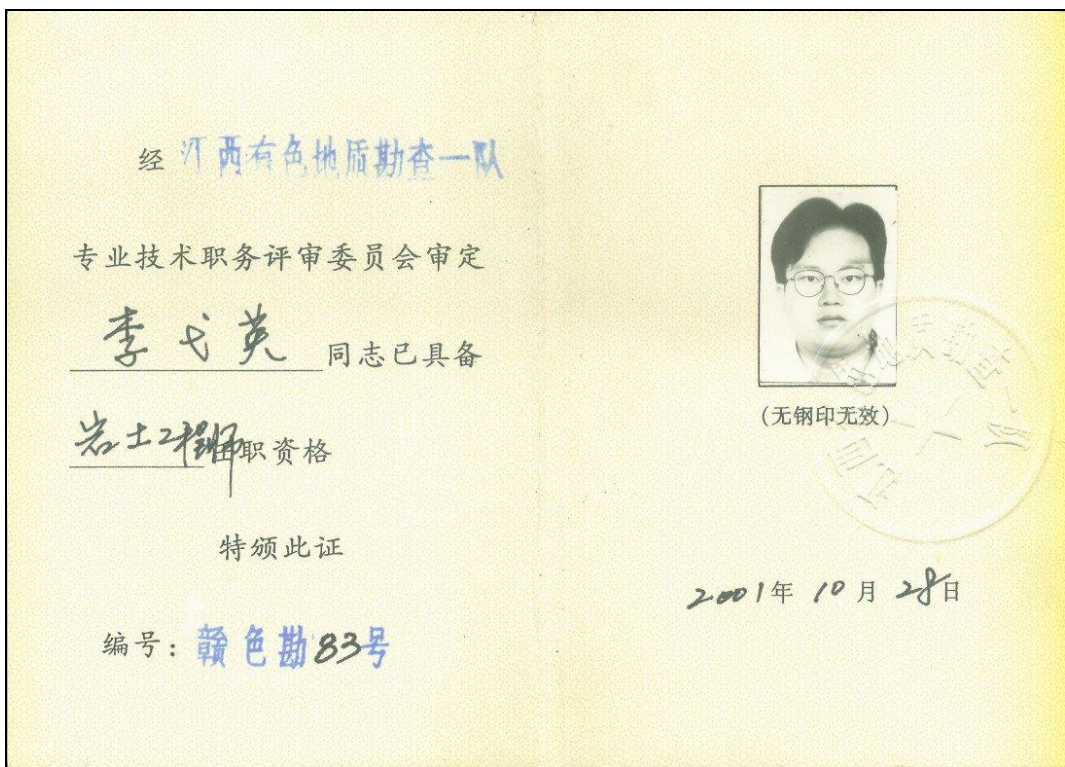 经 江西有色地质勘查一队
专业技术职务评审委员会审定
李弋英 同志已具备
岩土工程师任职资格
特颁此证
编号：赣色勘83号
(无钢印无效)
2001年 10月 28日